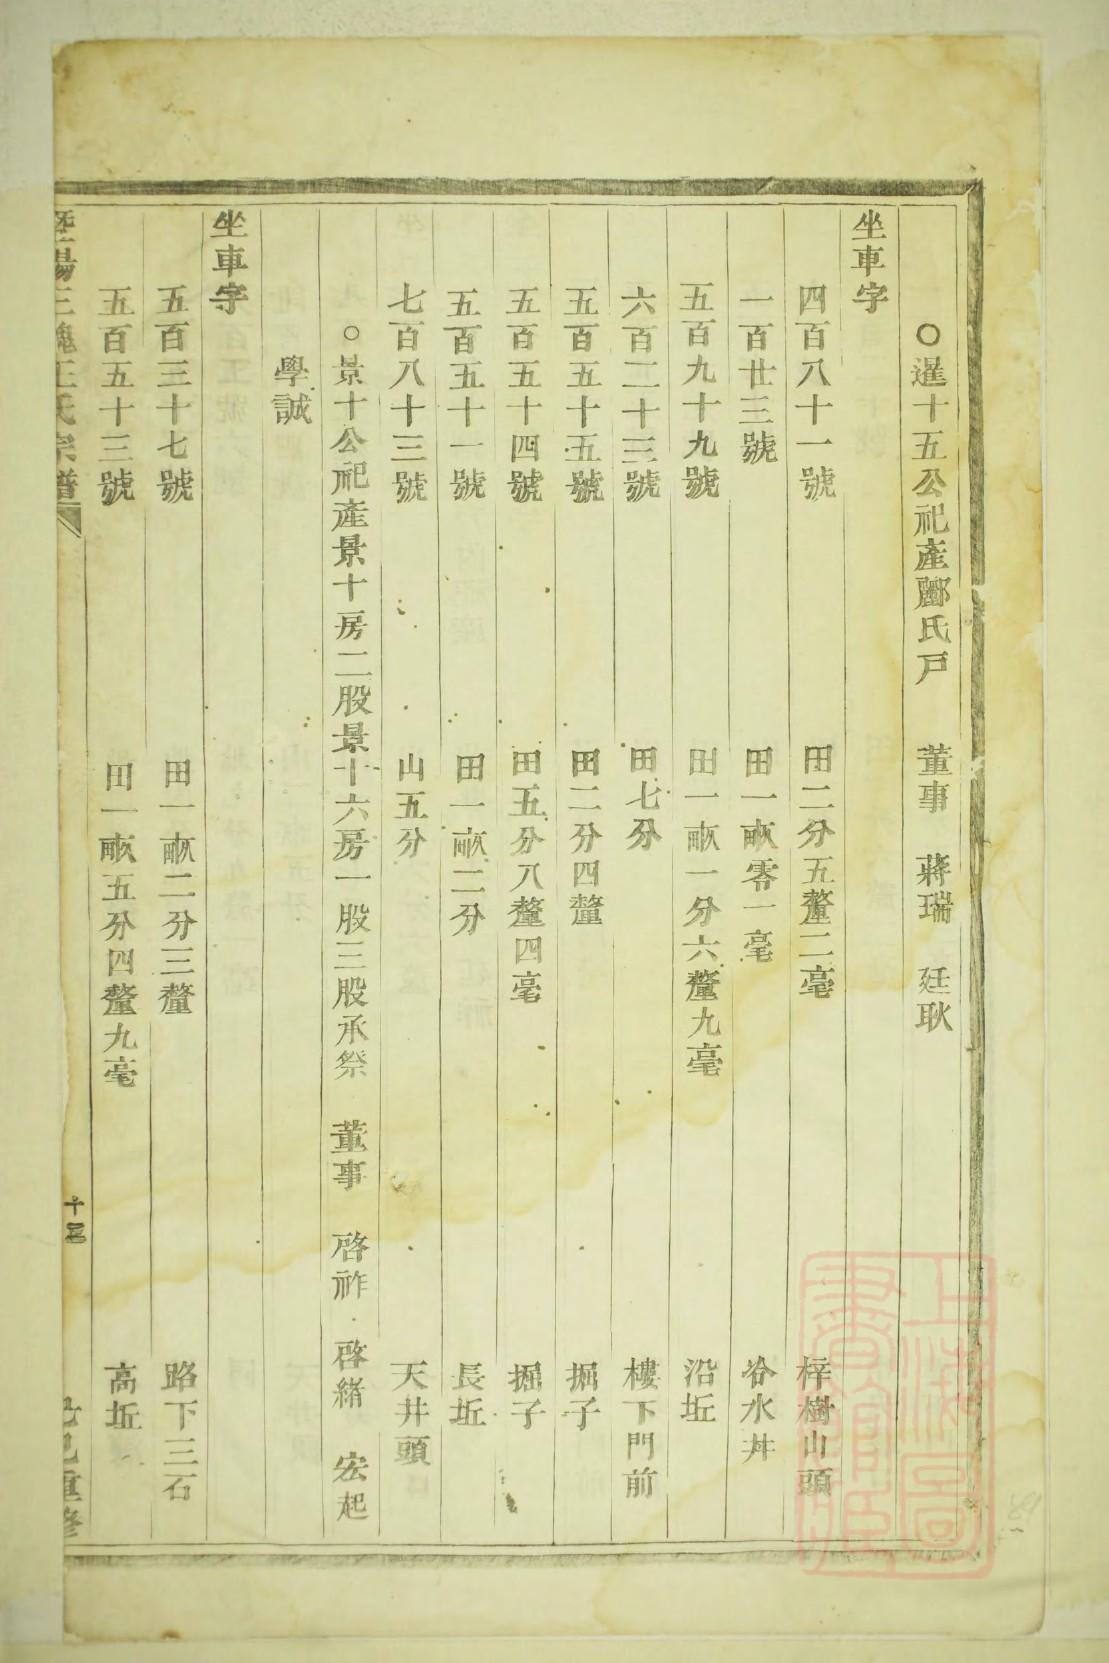 ○暹十五公祀產酈氏戸　董事　蔣瑞　廷耿
坐車字
四百八十一號　田二分五釐二毫　梓樹山頭
一百廿三號　田一畝零一毫　冷水丼
五百九十九號　田一畝一分六釐九毫　沿坵
六百二十三號　田七分　樓下門前
五百五十五號　田二分四釐　掘子
五百五十四號　田五分八釐四毫　掘子
五百五十一號　田一畝二分　長坵
七百八十三號　山五分　天井頭
○景十公祀產景十房二股景十六房一股三股承祭　董事　啓祚　啓緒　宏起
學誠
坐車字
五百三十七號　田一畝二分三釐　路下三石
五百五十三號　田一畝五分四釐九毫　高坵
暨陽三槐王氏宗譜　己巳重修
上海圖書館藏